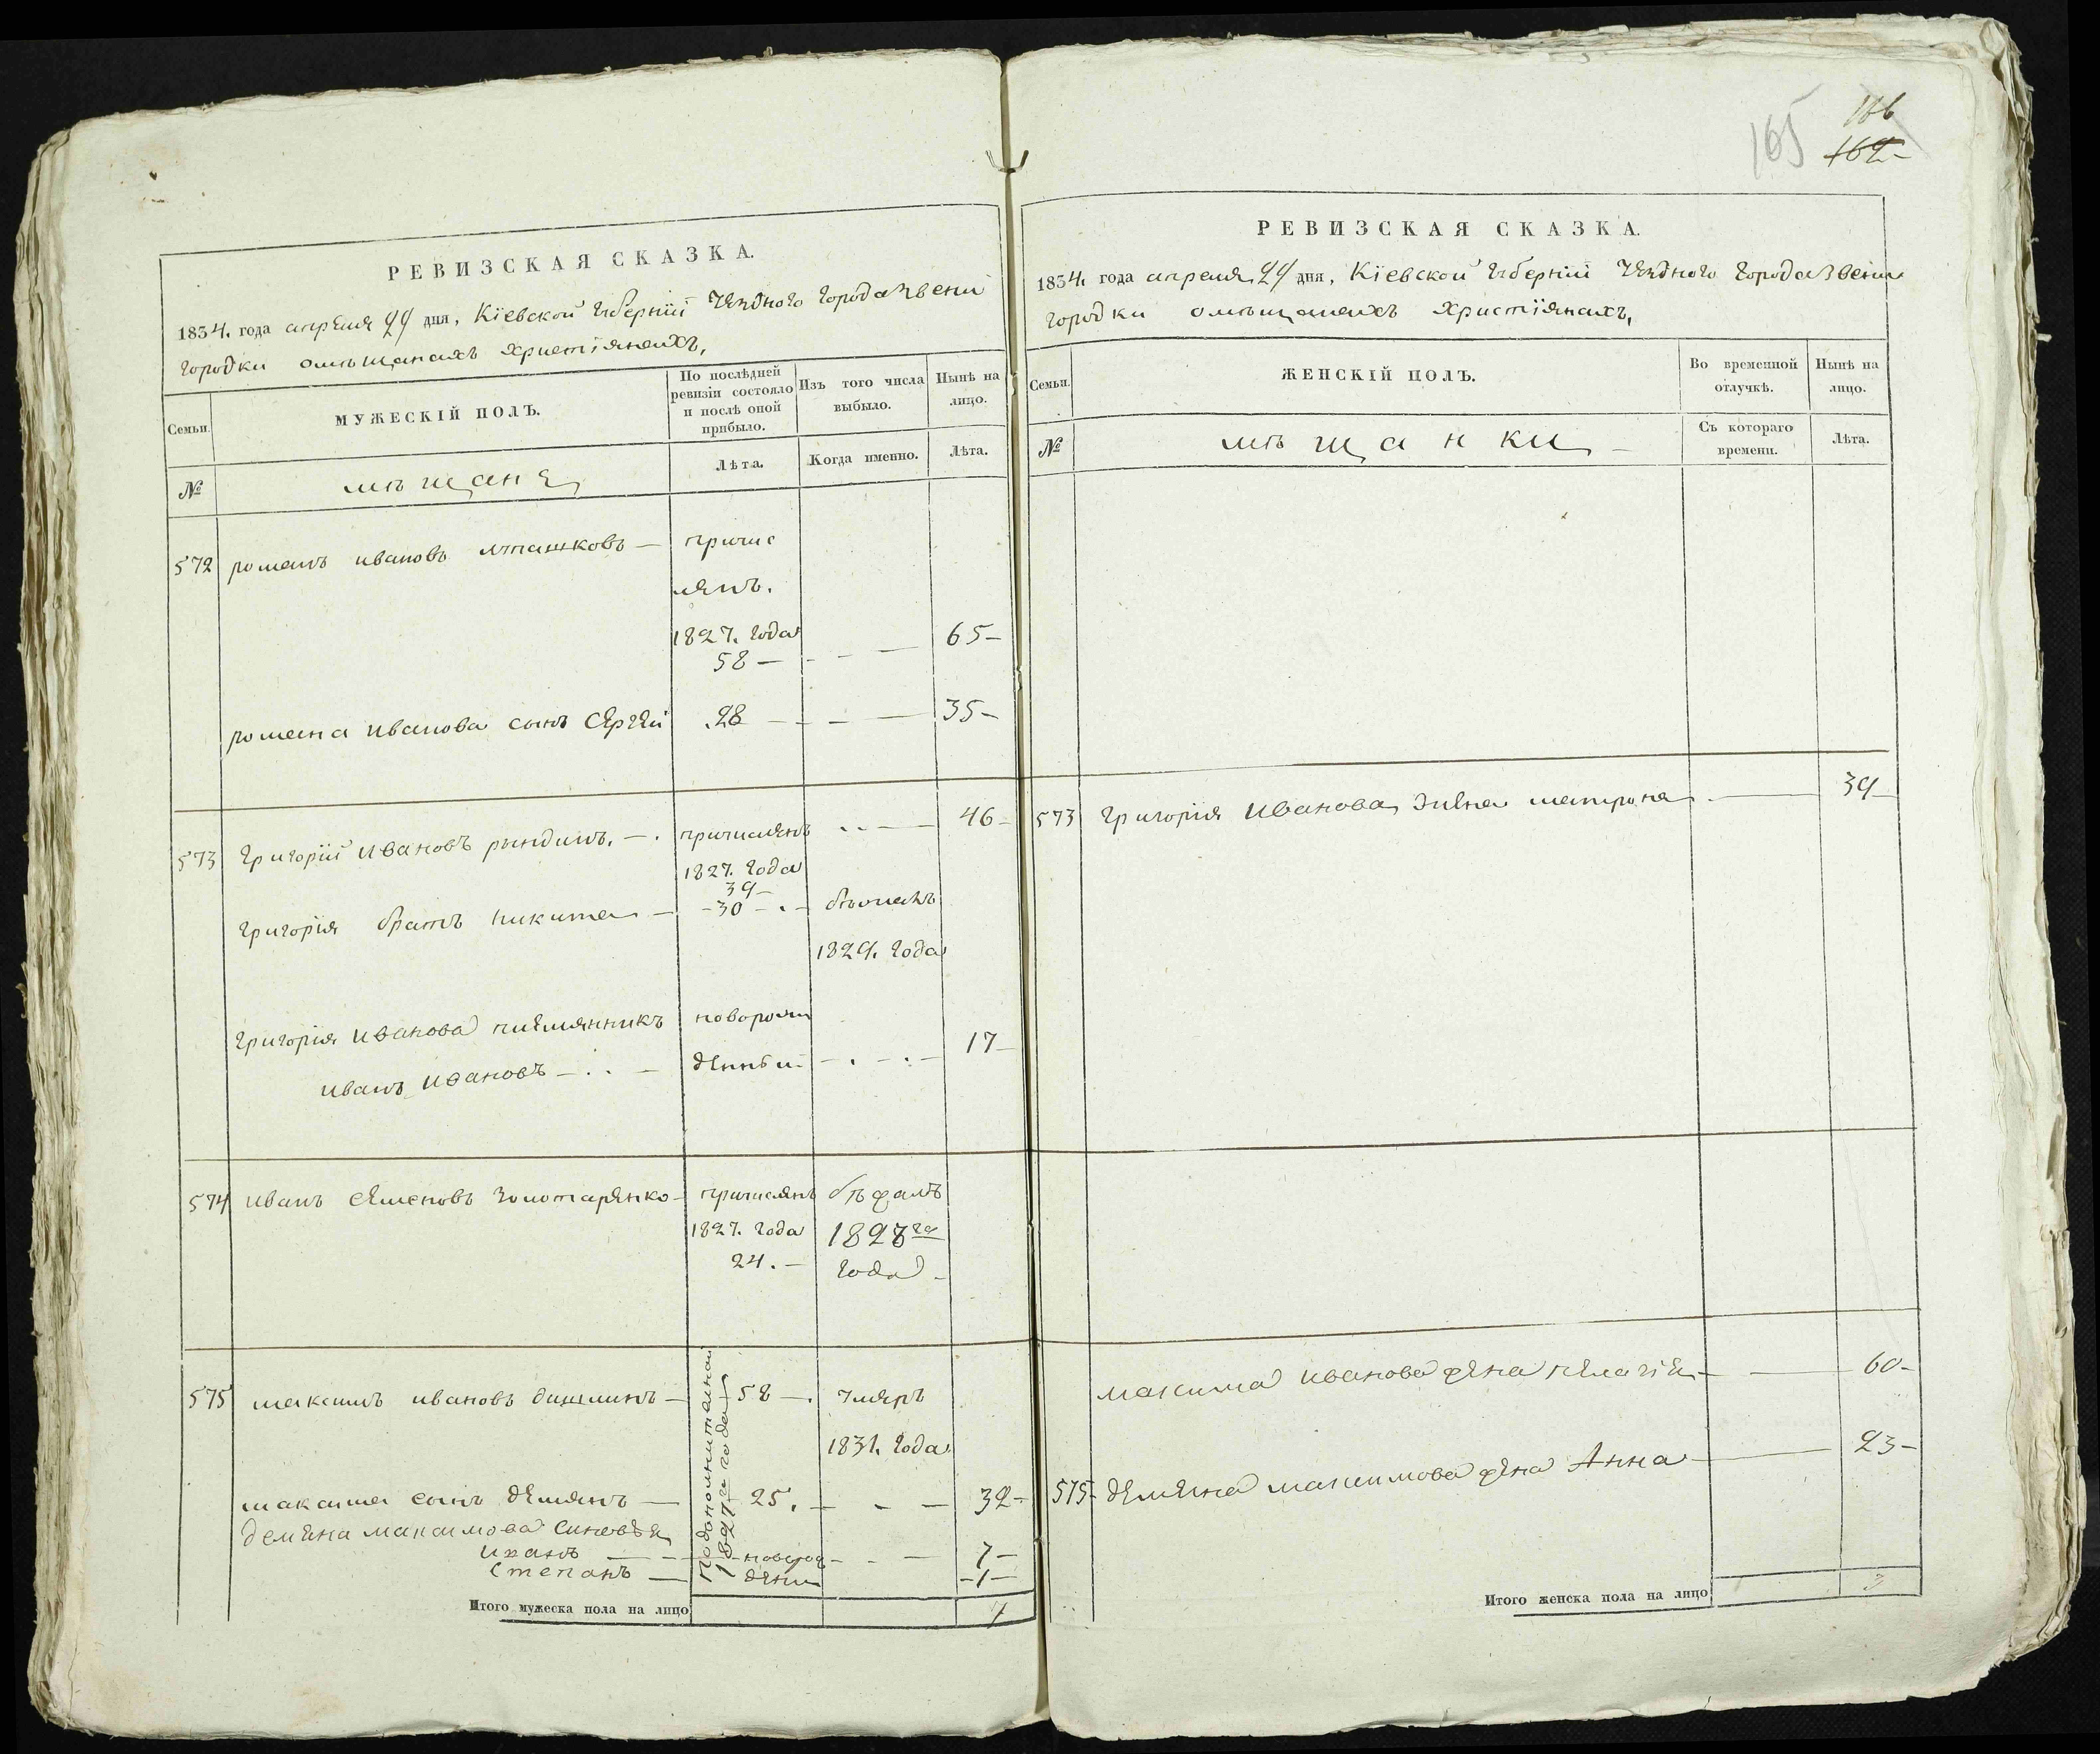 РЕВИЗСКАЯ СКАЗКА.
1834. года апреля 24 дня, Кіевской губерніи уезднаго города Звени
городки о мѣщанахъ христіянахъ,
Семьи.
МУЖЕСКІЙ ПОЛЪ.
По послѣдней ревизіи состояло и послѣ оной прибыло.
Изъ того числа выбыло.
Нынѣ на лицо.
№
мѣщане
Лѣта.
Когда именно.
Лѣта.
572 романъ ивановъ — причис
лянъ.
1827. года 65—
58 —
романа иванова сынъ Сергей 28 — — 35—
573 григорій ивановъ рындинъ. — причислянъ — 46—
1827. года
39—
григорія братъ никита — 30 — бѣжалъ
1829. года
григорія иванова племянникъ новорож
иванъ ивановъ — денный — 17—
574 иванъ семеновъ золотаренко — причислянъ бѣжалъ
1827. года 1828го
24. — года —
575 максимъ ивановъ — 58 — умеръ
1831. года
По дополнительной
1827го года
максима сынъ демянъ — 25. — 32—
демяна максимова синовья
иванъ — новорож — 7—
Степанъ — дени — 1—
Итого мужеска пола на лицо 7
165
166
162—
РЕВИЗСКАЯ СКАЗКА.
1834. года апреля 24 дня, Кіевской губерніи уезднаго города Звени
городки о мѣщанахъ христіянахъ,
Семьи.
ЖЕНСКІЙ ПОЛЪ.
Во временной отлучкѣ.
Нынѣ на лицо.
№
мѣщанки —
Съ котораго времени.
Лѣта.
573 григорія иванова жена матрона — 39—
максима иванова жена пелагія — 60—
575— демяна максимова жена Анна — 23—
Итого женска пола на лицо 3